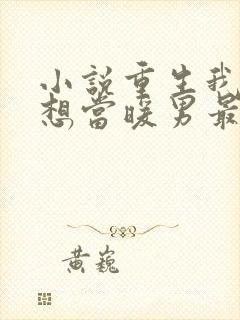 小說重生我
想當暖男最
黃巍